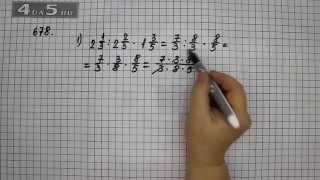 4OA5RU
678.
1) 2 1/3 : 2 2/3 · 1 3/5 = 7/3 : 8/3 · 8/5 =
= 7/3 · 3/8 · 8/5 = 7·3·8/3·8·5